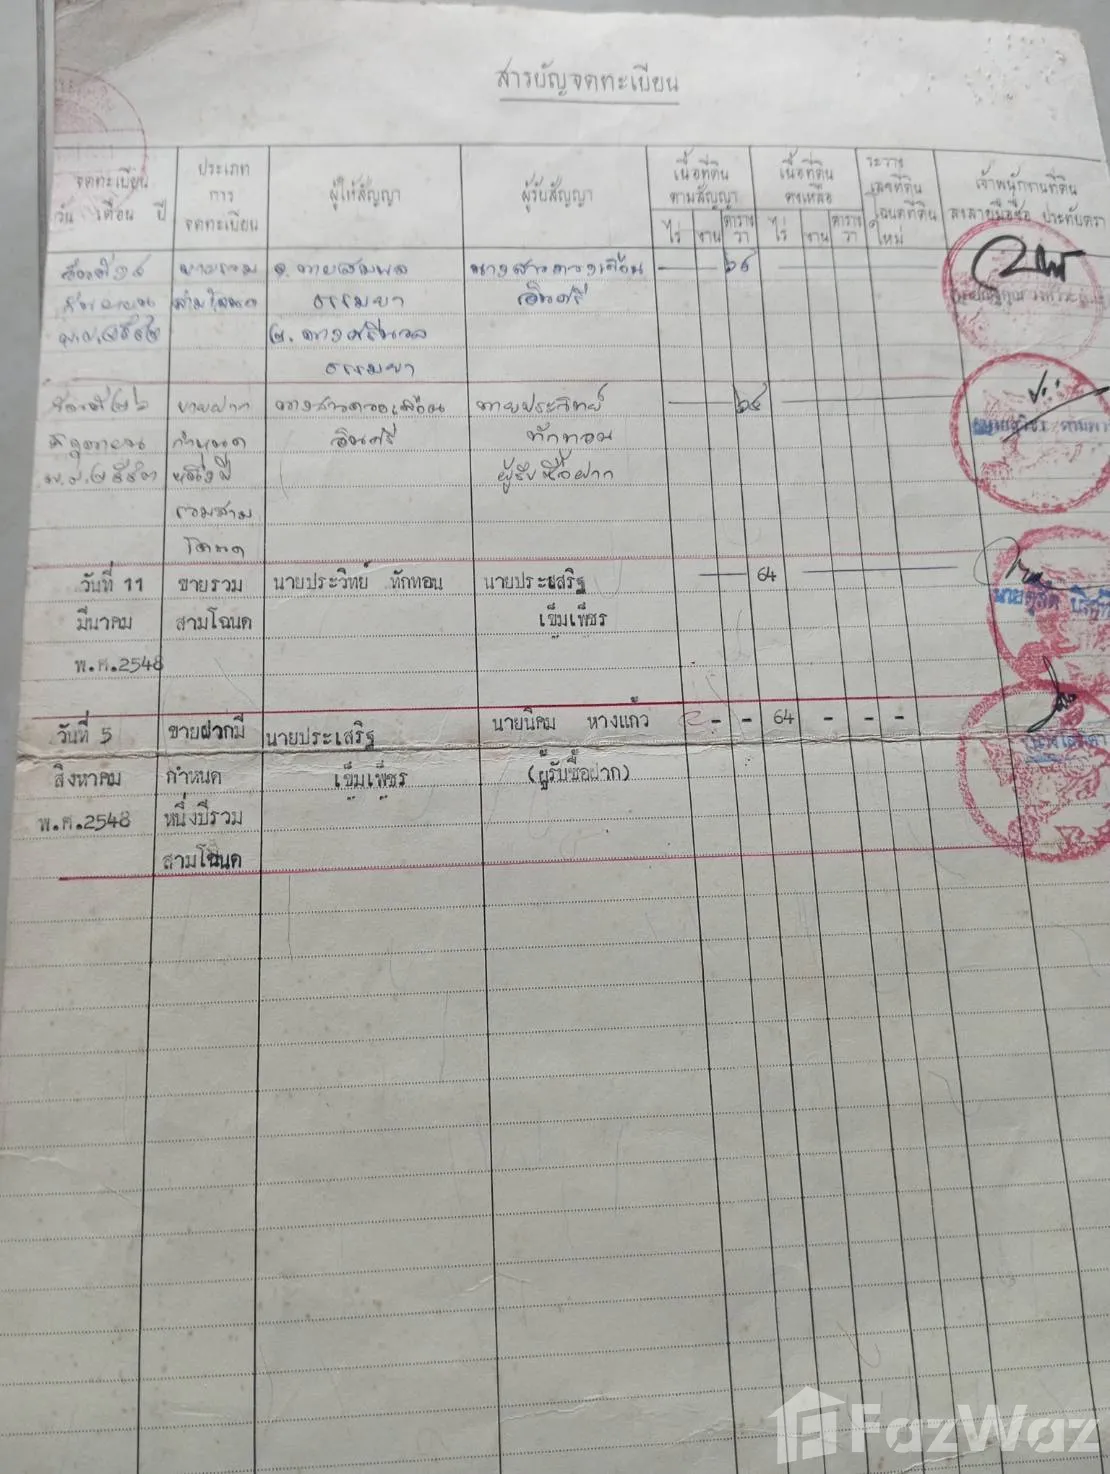 สารบัญจดทะเบียน
จดทะเบียน
วัน เดือน ปี
ประเภท
การ
จดทะเบียน
ผู้ให้สัญญา
ผู้รับสัญญา
เนื้อที่ดิน
ตามสัญญา
ไร่ งาน ตาราง
วา
เนื้อที่ดิน
คงเหลือ
ไร่ งาน ตาราง
วา
ระวาง
เลขที่ดิน
โฉนดที่ดิน
ใหม่
เจ้าพนักงานที่ดิน
ลงลายมือชื่อ ประทับตรา
ขายรวม ๑. นายสมพล นางสาวดวงเดือน ๖๔
สามโฉนด ธรรมยา อินศรี
๒. นางศรีนวล
ธรรมยา
วันที่ ๒๖ ขายฝาก นางสาวดวงเดือน นายประวิทย์ ๖๔
กำหนด อินศรี ทักทอน
หนึ่งปี ผู้รับซื้อฝาก
รวมสาม
โฉนด
วันที่ 11 ขายรวม นายประวิทย์ ทักทอน นายประเสริฐ 64
มีนาคม สามโฉนด เข็มเพ็ชร
พ.ศ.2548
วันที่ 5 ขายฝากมี นายประเสริฐ นายนิคม หางแก้ว - - 64 - - -
สิงหาคม กำหนด เข็มเพ็ชร (ผู้รับซื้อฝาก)
พ.ศ.2548 หนึ่งปีรวม
สามโฉนด
FazWaz